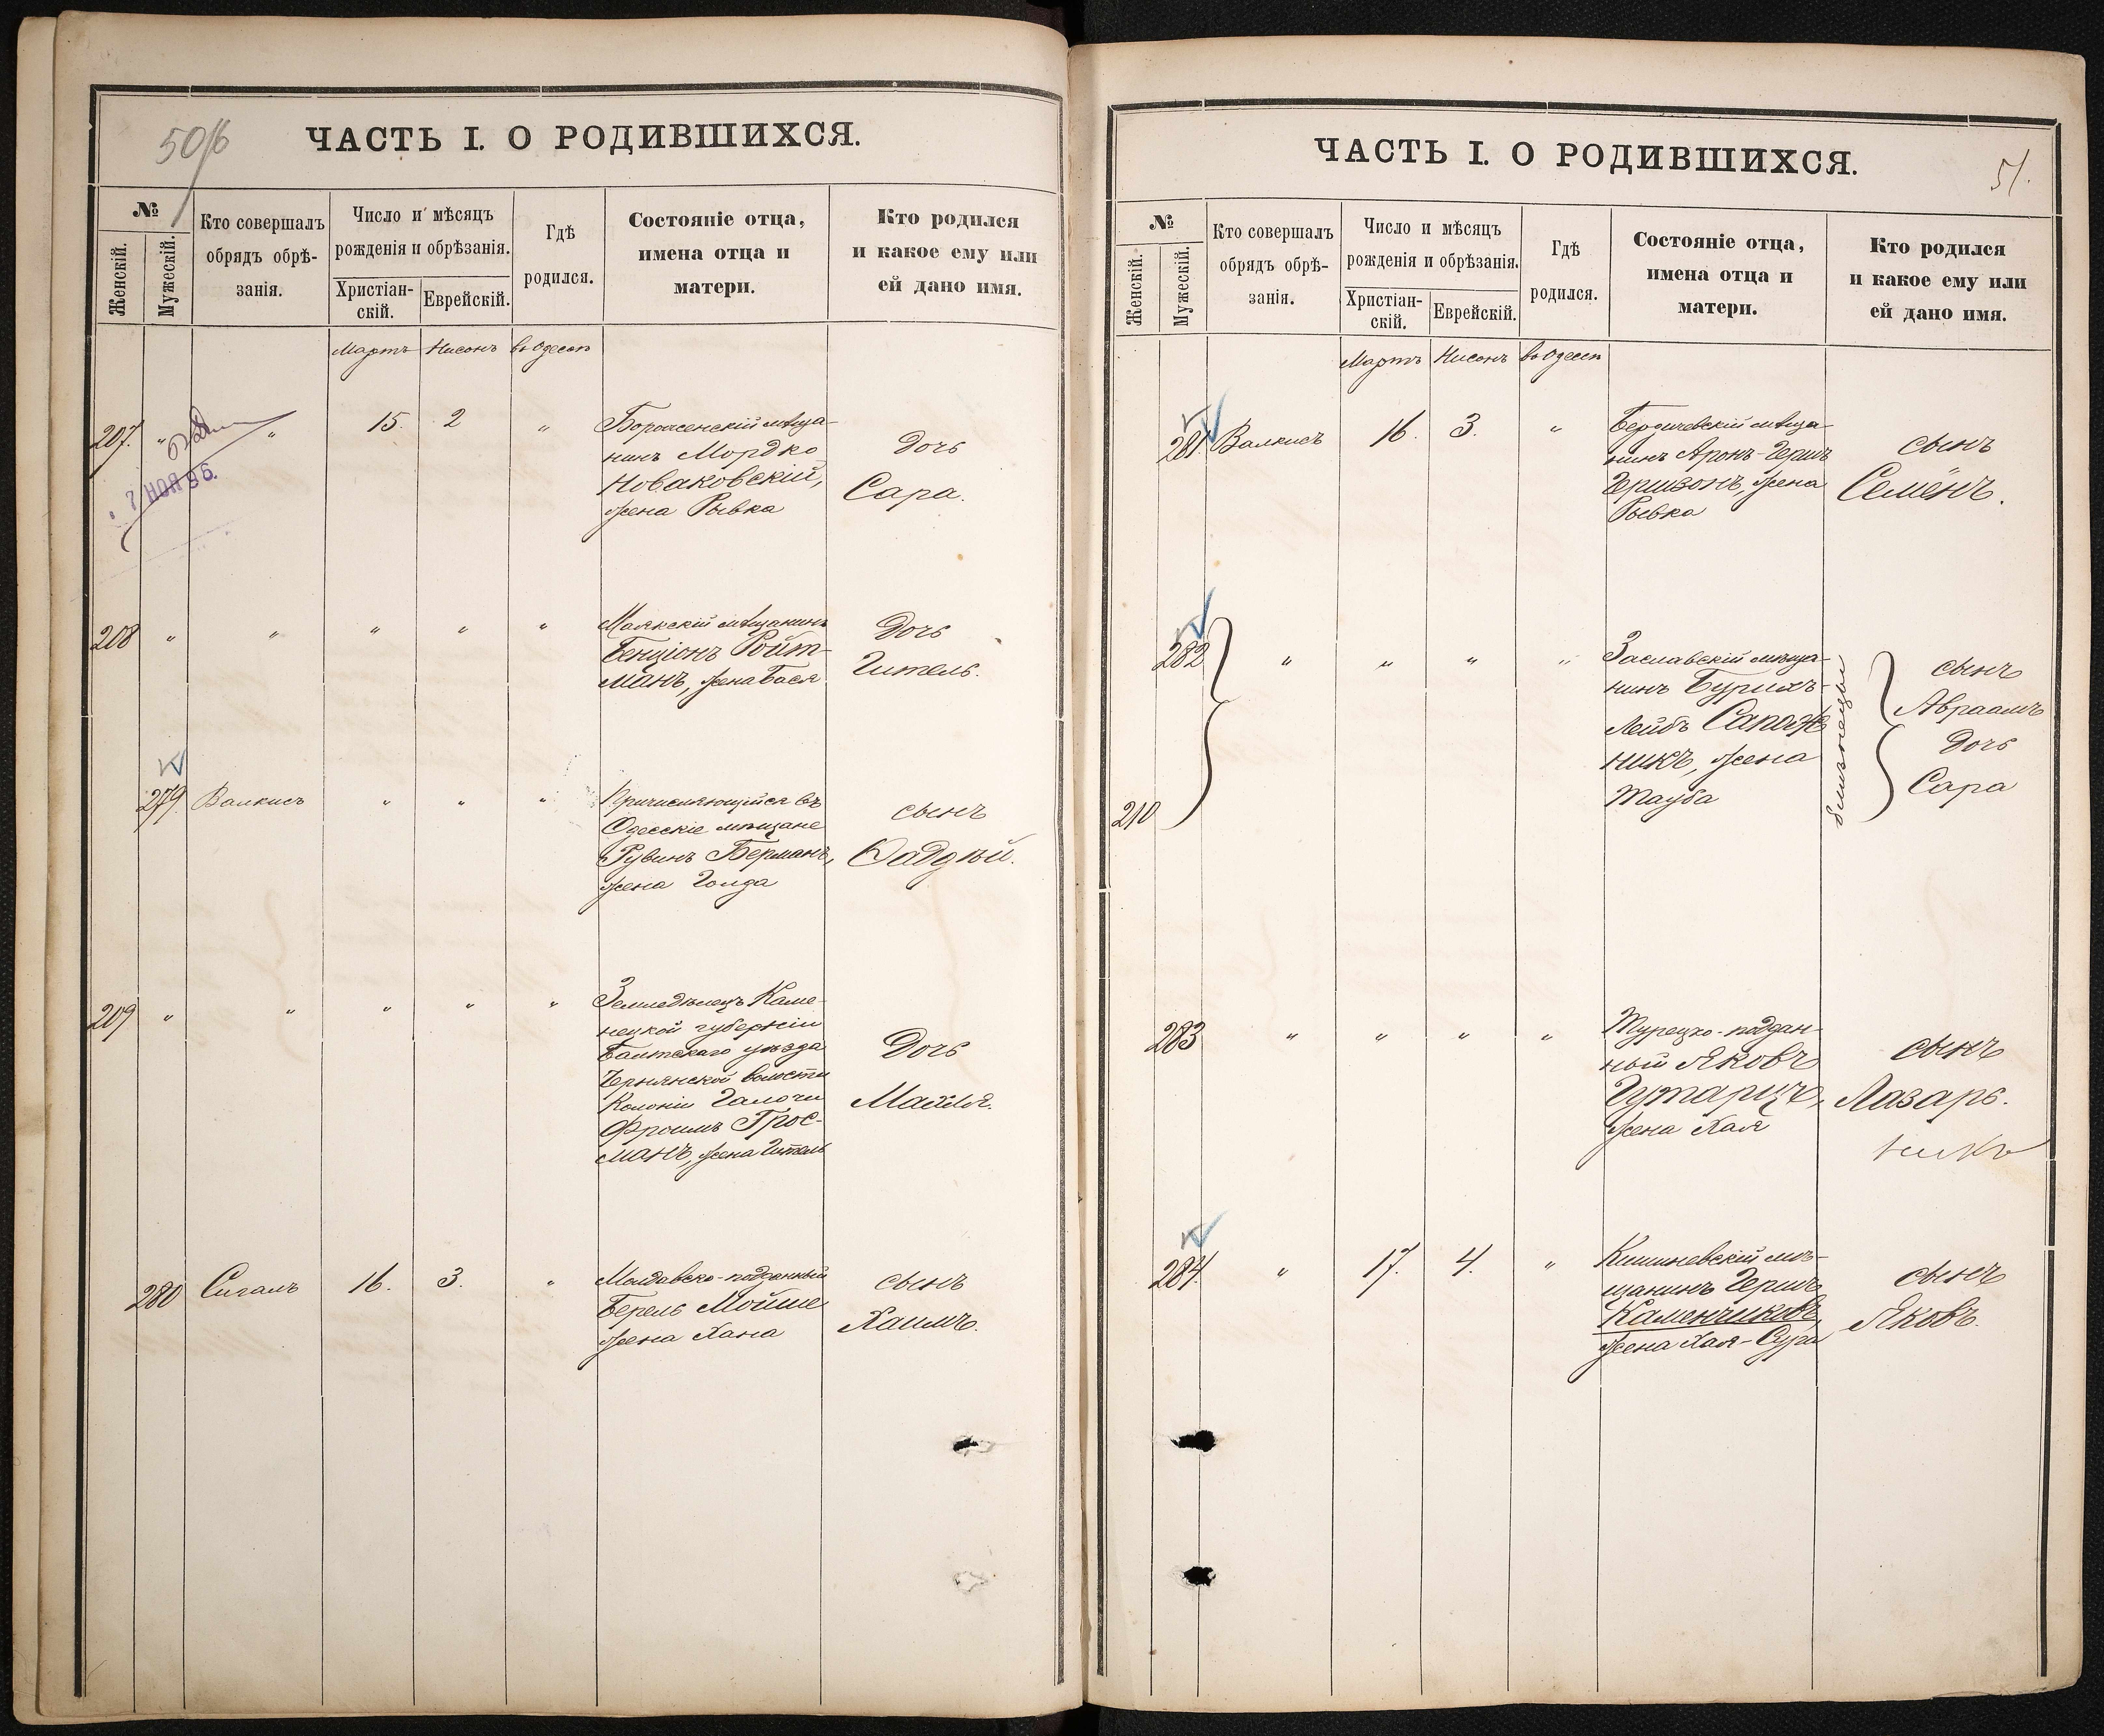 50/6
ЧАСТЬ I. О РОДИВШИХСЯ.
№
Женскій.
Мужескій.
Кто совершалъ
обрядъ обрѣ-
занія.
Число и мѣсяцъ
рожденія и обрѣзанія.
Христіан-
скій.
Еврейскій.
Гдѣ
родился.
Состояніе отца,
имена отца и
матери.
Кто родился
и какое ему или
ей дано имя.
Мартъ Нисонъ въ Одессѣ
207. " " 15. 2 "
мѣща-
нинъ Мордко
Новаковскій,
жена Рывка
Дочь
Сара.
7 НОЯ 96.
208 " " " " "
Маякскій мѣщанинъ
Бенціонъ Ройт-
манъ, жена Бася
Дочь
Гитель.
279. Валкисъ " " "
Причисляющійся въ
Одесскіе мѣщане
Рувинъ Берманъ,
жена Голда
сынъ
Ѳаддѣй.
209 " " " " "
Земледѣлецъ Каме-
нецкой губерніи
Балтскаго уѣзда
волости
Колоніи
Фроимъ Грос-
манъ, жена Гитель
Дочь
Малля.
280 Сигалъ 16. 3. "
Молдавско-подданный
Берель Мойше
жена Хана
сынъ
Хаимъ.
ЧАСТЬ I. О РОДИВШИХСЯ.
51.
№
Женскій.
Мужескій.
Кто совершалъ
обрядъ обрѣ-
занія.
Число и мѣсяцъ
рожденія и обрѣзанія.
Христіан-
скій.
Еврейскій.
Гдѣ
родился.
Состояніе отца,
имена отца и
матери.
Кто родился
и какое ему или
ей дано имя.
Мартъ Нисонъ въ Одессѣ
281. Валкисъ 16. 3. "
Бердичевскій мѣща-
нинъ Аронъ-Гершъ
Гершзонъ, жена
Рывка
сынъ
Семенъ.
282 " " " "
Заславскій мѣща-
нинъ Бурихъ-
Лейбъ Сапож
никъ, жена
Тауба
близнецы
сынъ
Авраамъ
Дочь
Сара
210
283 " " " "
Турецко-поддан-
ный Яковъ
жена Хая
сынъ
Лазарь.
никъ
284. " 17. 4. "
Кишиневскій мѣ-
щанинъ Гершъ
Каменчиковъ,
жена Хая-Сура
сынъ
Яковъ.